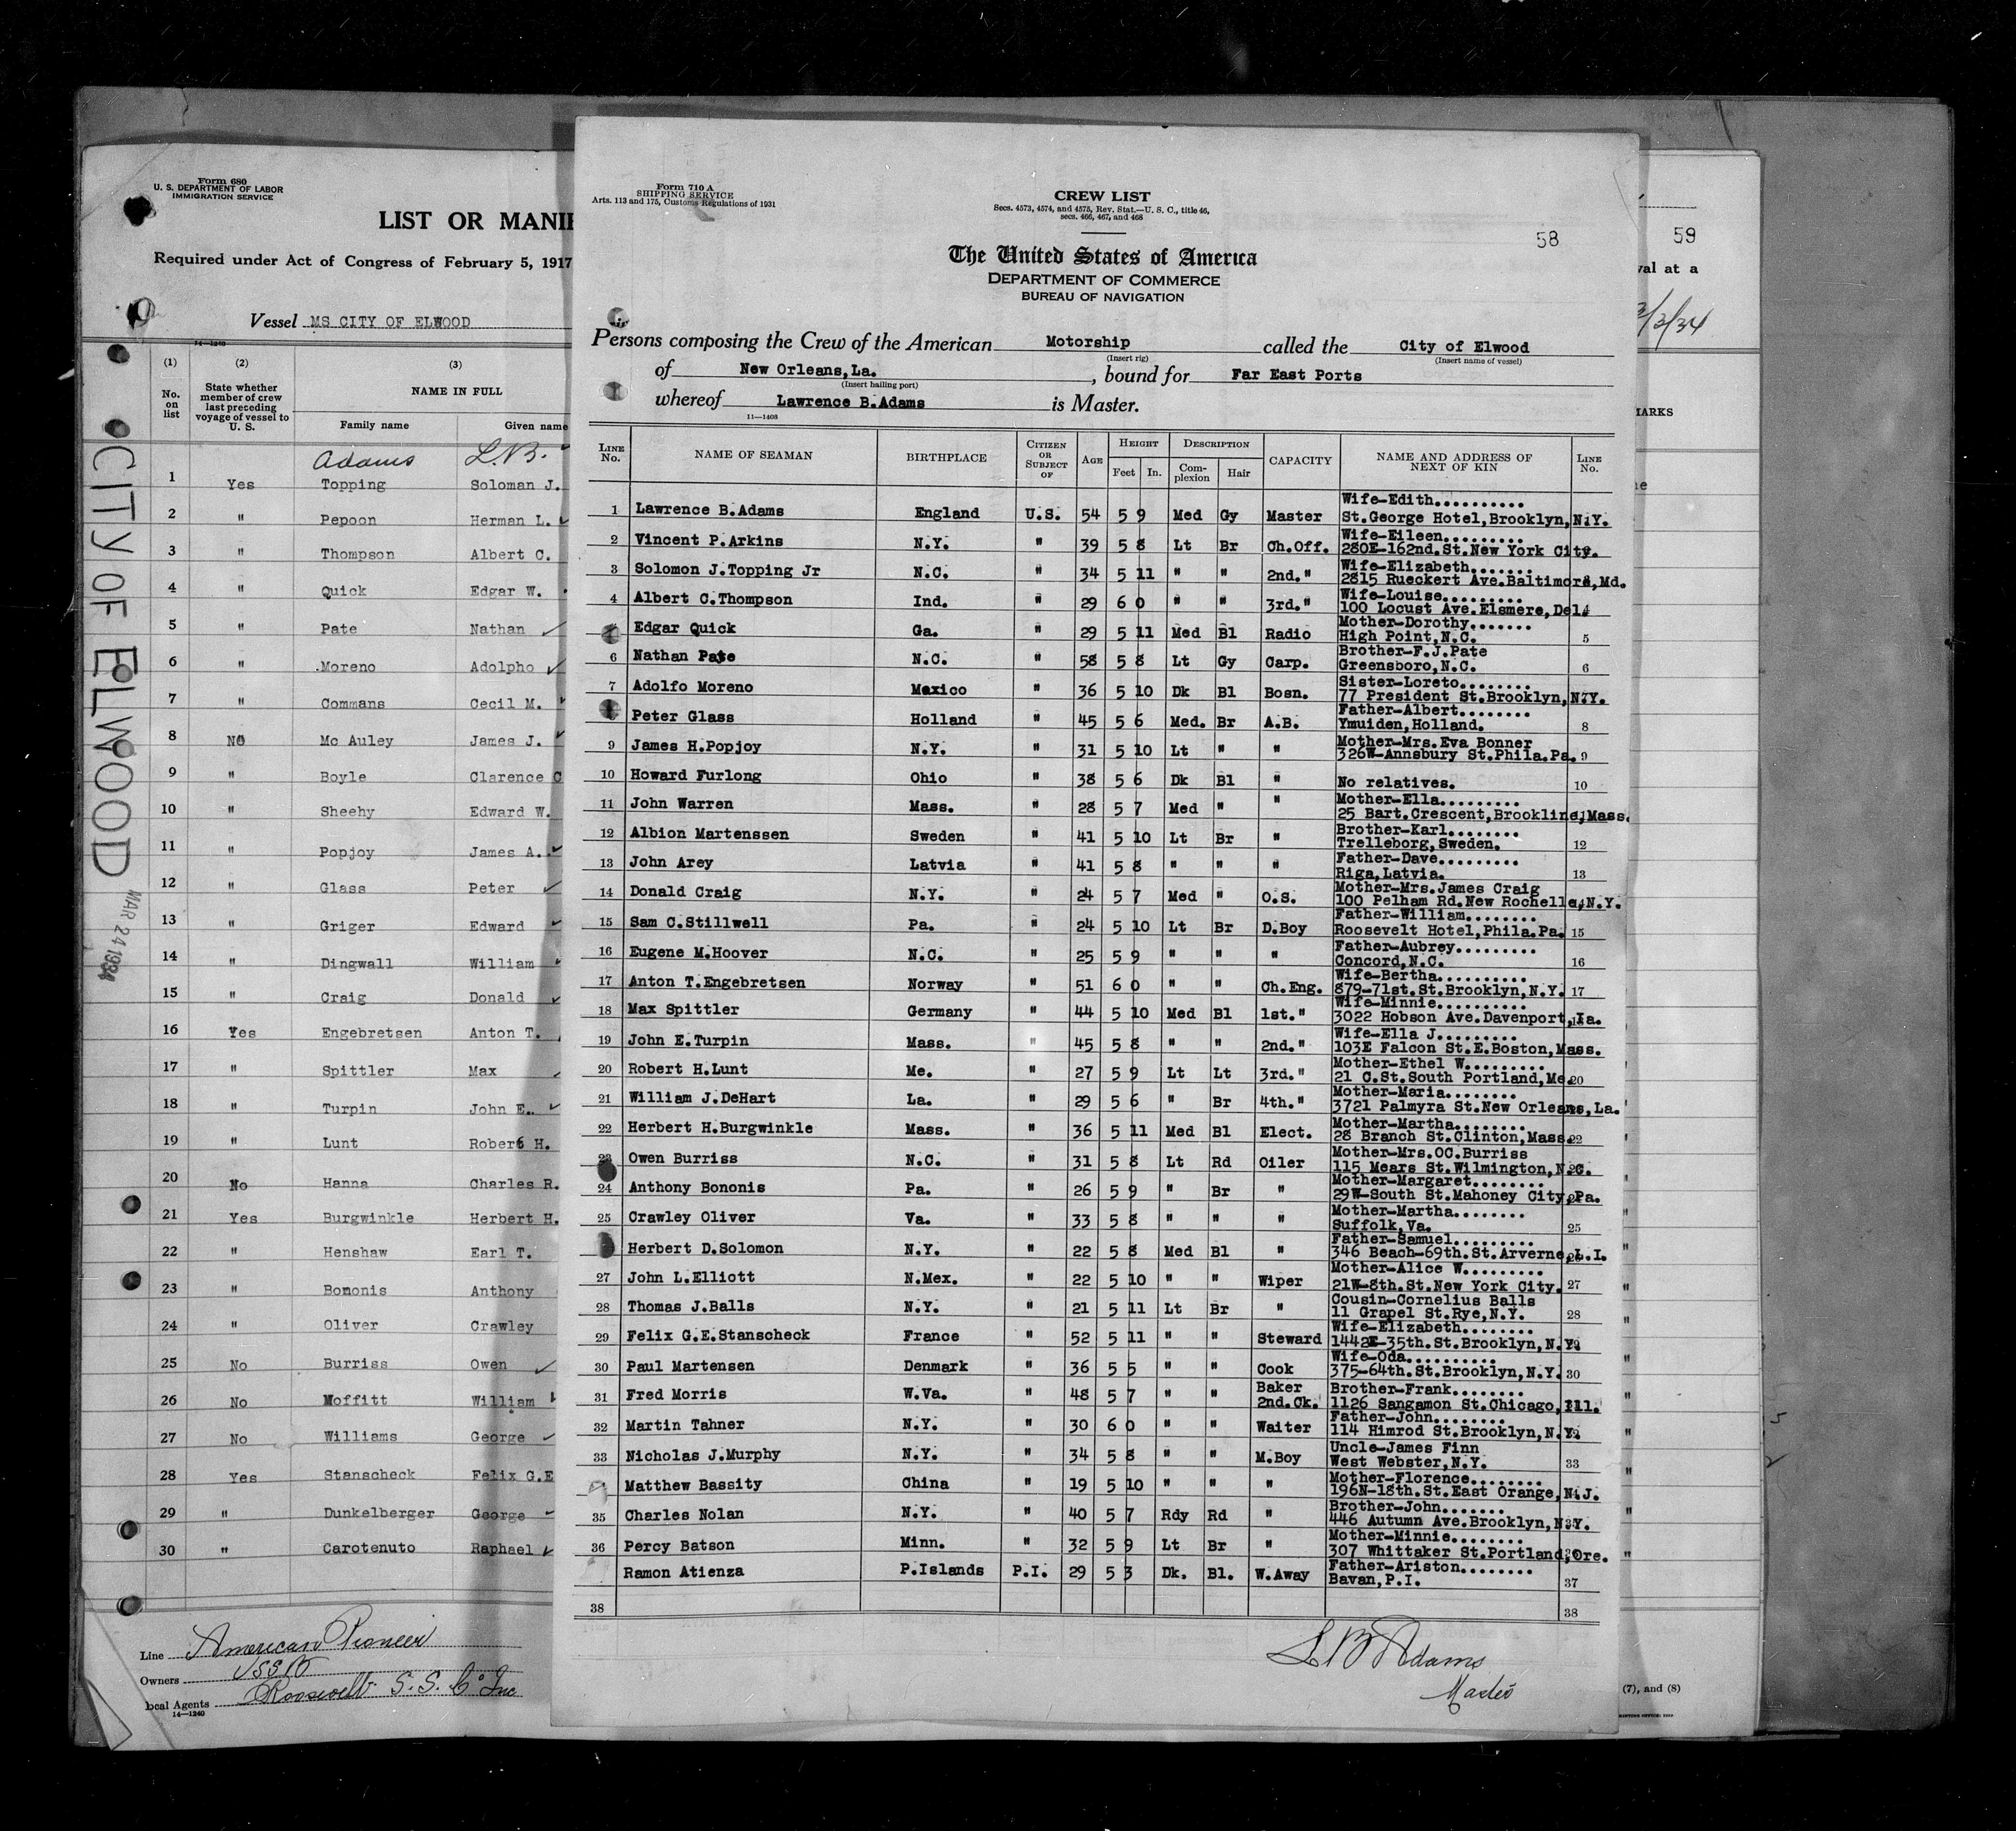 Form 680
U. S. DEPARTMENT OF LABOR
IMMIGRATION SERVICE
LIST OR MANIF
Required under Act of Congress of February 5, 1917
Vessel MS CITY OF ELWOOD
14—1240
(1) (2) (3)
No. on list State whether member of crew last preceding voyage of vessel to U. S. NAME IN FULL
Family name Given name
Adams L.B.
1 Yes Topping Soloman J.
2 " Pepoon Herman L.
3 " Thompson Albert C.
4 " Quick Edgar W.
5 " Pate Nathan
6 " Moreno Adolpho
7 " Commans Cecil M.
8 No Mc Auley James J.
9 " Boyle Clarence C
10 " Sheehy Edward W.
11 " Popjoy James A.
12 " Glass Peter
13 " Griger Edward
14 " Dingwall William
15 " Craig Donald
16 Yes Engebretsen Anton T.
17 " Spittler Max
18 " Turpin John E.
19 " Lunt Robert H.
20 No Hanna Charles R.
21 Yes Burgwinkle Herbert H.
22 " Henshaw Earl T.
23 " Bomonis Anthony
24 " Oliver Crawley
25 No Burriss Owen
26 No Moffitt William
27 No Williams George
28 Yes Stanscheck Felix G.E
29 " Dunkelberger George
30 " Carotenuto Raphael
Line American Pioneer
Owners USSB
ocal Agents Roosevelt S.S. Co Inc
14—1240
CITY OF ELWOOD
MAR 24 1934
Form 710 A
SHIPPING SERVICE
Arts. 113 and 175, Customs Regulations of 1931
CREW LIST
Secs. 4573, 4574, and 4575, Rev. Stat.—U. S. C., title 46,
secs. 466, 467, and 468
58
The United States of America
DEPARTMENT OF COMMERCE
BUREAU OF NAVIGATION
Persons composing the Crew of the American Motorship called the City of Elwood
(Insert rig) (Insert name of vessel)
of New Orleans,La., bound for Far East Ports
(Insert hailing port)
whereof Lawrence B.Adams is Master.
11—1408
LINE No. NAME OF SEAMAN BIRTHPLACE CITIZEN OR SUBJECT OF AGE HEIGHT Feet In. DESCRIPTION Com-plexion Hair CAPACITY NAME AND ADDRESS OF NEXT OF KIN LINE No.
1 Lawrence B.Adams England U.S. 54 5 9 Med Gy Master Wife-Edith..........
St.George Hotel,Brooklyn,N.Y.
2 Vincent P.Arkins N.Y. " 39 5 8 Lt Br Ch.Off. Wife-Eileen.........
280E-162nd.St.New York City.
3 Solomon J.Topping Jr N.C. " 34 5 11 " " 2nd." Wife-Elizabeth.......
2815 Rueckert Ave.Baltimore,Md.
4 Albert C.Thompson Ind. " 29 6 0 " " 3rd." Wife-Louise.........
100 Locust Ave.Elsmere,Del.
Edgar Quick Ga. " 29 5 11 Med Bl Radio Mother-Dorothy.......
High Point,N.C. 5
6 Nathan Pate N.C. " 58 5 8 Lt Gy Carp. Brother-F.J.Pate
Greensboro,N.C. 6
7 Adolfo Moreno Mexico " 36 5 10 Dk Bl Bosn. Sister-Loreto........
77 President St.Brooklyn,N.Y.
Peter Glass Holland " 45 5 6 Med. Br A.B. Father-Albert........
Ymuiden,Holland. 8
9 James H.Popjoy N.Y. " 31 5 10 Lt " " Mother-Mrs.Eva Bonner
326W-Annsbury St.Phila.Pa. 9
10 Howard Furlong Ohio " 38 5 6 Dk Bl " No relatives. 10
11 John Warren Mass. " 28 5 7 Med " " Mother-Ella.........
25 Bart.Crescent,Brookline,Mass.
12 Albion Martenssen Sweden " 41 5 10 Lt Br " Brother-Karl........
Trelleborg,Sweden. 12
13 John Arey Latvia " 41 5 8 " " " Father-Dave.........
Riga,Latvia. 13
14 Donald Craig N.Y. " 24 5 7 Med " O.S. Mother-Mrs.James Craig
100 Pelham Rd.New Rochelle,N.Y.
15 Sam C.Stillwell Pa. " 24 5 10 Lt Br D.Boy Father-William........
Roosevelt Hotel,Phila.Pa. 15
16 Eugene M.Hoover N.C. " 25 5 9 " " " Father-Aubrey.........
Concord,N.C. 16
17 Anton T.Engebretsen Norway " 51 6 0 " " Ch.Eng. Wife-Bertha..........
879-71st.St.Brooklyn,N.Y. 17
18 Max Spittler Germany " 44 5 10 Med Bl 1st." Wife-Minnie..........
3022 Hobson Ave.Davenport,Ia.
19 John E.Turpin Mass. " 45 5 8 " " 2nd." Wife-Ella J.........
103E Falcon St.E.Boston,Mass.
20 Robert H.Lunt Me. " 27 5 9 Lt Lt 3rd." Mother-Ethel W.........
21 C.St.South Portland,Me. 20
21 William J.DeHart La. " 29 5 6 " Br 4th." Mother-Maria........
3721 Palmyra St.New Orleans,La.
22 Herbert H.Burgwinkle Mass. " 36 5 11 Med Bl Elect. Mother-Martha........
28 Branch St.Clinton,Mass. 22
23 Owen Burriss N.C. " 31 5 8 Lt Rd Oiler Mother-Mrs.OC.Burriss
115 Mears St.Wilmington,N.C.
24 Anthony Bononis Pa. " 26 5 9 " Br " Mother-Margaret........
29W-South St.Mahoney City,Pa.
25 Crawley Oliver Va. " 33 5 8 " " " Mother-Martha........
Suffolk,Va. 25
Herbert D.Solomon N.Y. " 22 5 8 Med Bl " Father-Samuel.........
346 Beach-69th.St.Arverne,L.I.
27 John L.Elliott N.Mex. " 22 5 10 " " Wiper Mother-Alice W.........
21W-8th.St.New York City. 27
28 Thomas J.Balls N.Y. " 21 5 11 Lt Br " Cousin-Cornelius Balls
11 Grapel St.Rye,N.Y. 28
29 Felix G.E.Stanscheck France " 52 5 11 " " Steward Wife-Elizabeth........
1442E-35th.St.Brooklyn,N.Y.
30 Paul Martensen Denmark " 36 5 5 " " Cook Wife-Oda..........
375-64th.St.Brooklyn,N.Y. 30
31 Fred Morris W.Va. " 48 5 7 " " Baker 2nd.Ck. Brother-Frank........
1126 Sangamon St.Chicago,Ill.
32 Martin Tahner N.Y. " 30 6 0 " " Waiter Father-John........
114 Himrod St.Brooklyn,N.Y.
33 Nicholas J.Murphy N.Y. " 34 5 8 " " M.Boy Uncle-James Finn
West Webster,N.Y. 33
Matthew Bassity China " 19 5 10 " " " Mother-Florence........
196N-18th.St.East Orange,N.J.
35 Charles Nolan N.Y. " 40 5 7 Rdy Rd " Brother-John.......
446 Autumn Ave.Brooklyn,N.Y.
36 Percy Batson Minn. " 32 5 9 Lt Br " Mother-Minnie........
307 Whittaker St.Portland,Ore.
Ramon Atienza P.Islands P.I. 29 5 3 Dk. Bl. W.Away Father-Ariston........
Bavan,P.I. 37
38 38
L B Adams
Master
59
val at a
3/3/34
MARKS
ne
(7), and (8)